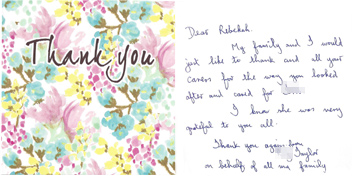 Thank you
Dear Rebekah.
My family and I would
just like to thank and all your
Carers for the way you looked
after and cared for
I know she was very
grateful to you all.
Thank you again from
Taylor
on behalf of all my family